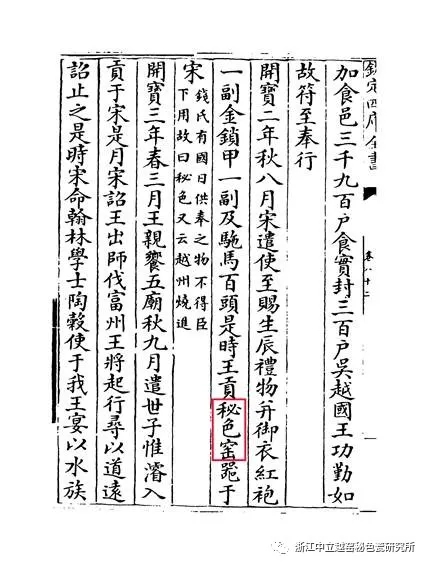 欽定四庫全書
卷八十二
加食邑三千九百戶食實封三百戶吳越國王功勤如
故符至奉行
開寶二年秋八月宋遣使至賜生辰禮物并御衣紅袍
一副金鎖甲一副及駞馬百頭是時王貢秘色窑噐于
宋錢氏有國日供奉之物不得臣
下用故曰秘色又云越州燒進
開寶三年春三月王親饗五廟秋九月遣世子惟濬入
貢于宋是月宋詔王出師伐富州王將起行尋以道遠
詔止之是時宋命翰林學士陶糓使于我王宴以水族
浙江中立越窑秘色瓷研究所